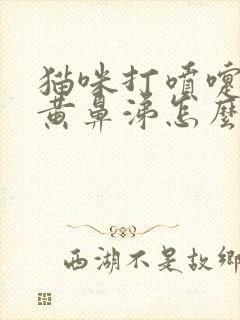 猫咪打喷嚏
黄鼻涕怎麼
西湖不是故鄉